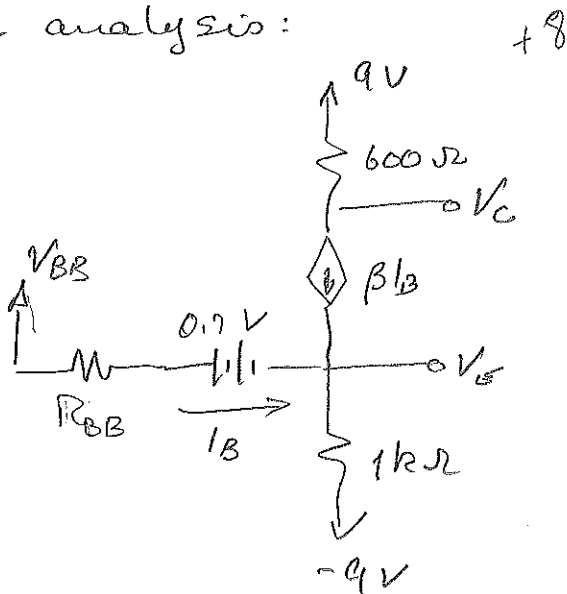 analysis:
+8
9V
600Ω
V_C
V_BB
βI_B
0.7 V
V_E
R_BB
I_B
1kΩ
-9V